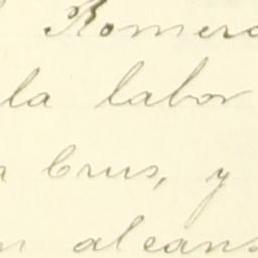 Romero
la labor
Crus, y
alcans